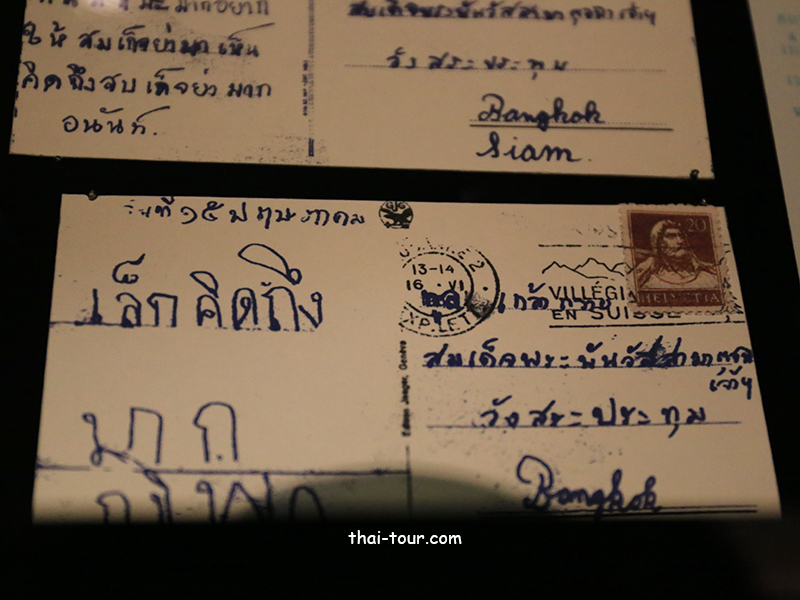 มากอยาก
ให้ สมเด็จย่ามาเห็น
คิดถึงสมเด็จย่า มาก
อนันท์.
สมเด็จพระพันวัสสามาตุจฉาเจ้าฯ
วังสระประทุม
Bangkok
Siam.
วันที่ ๑๕ พฤษภาคม
เล็ก คิดถึง
มาก
13-14
16 VI
EXP.LET
VILLÉGIA
EN SUISSE
20
HELVETIA
สมเด็จพระพันวัสสามาตุจฉา
เจ้าฯ
วังสระประทุม
Bangkok
Edition Jaeger, Genève
thai-tour.com